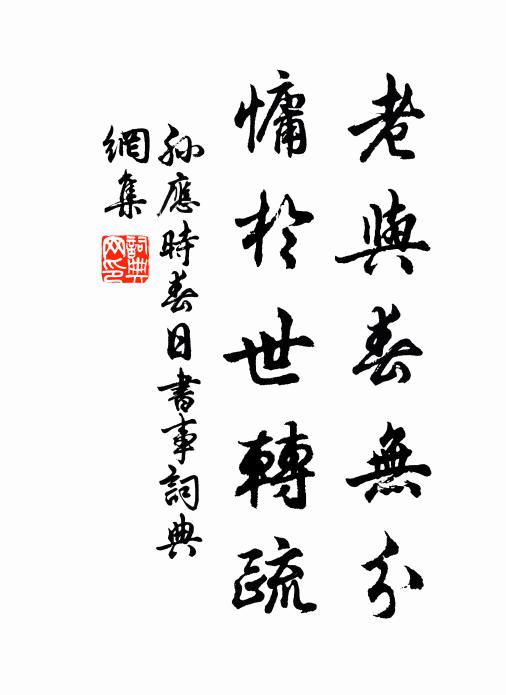 老與春無分
慵於世轉疏
孫應時春日書事詞典
網集
詞典
网印